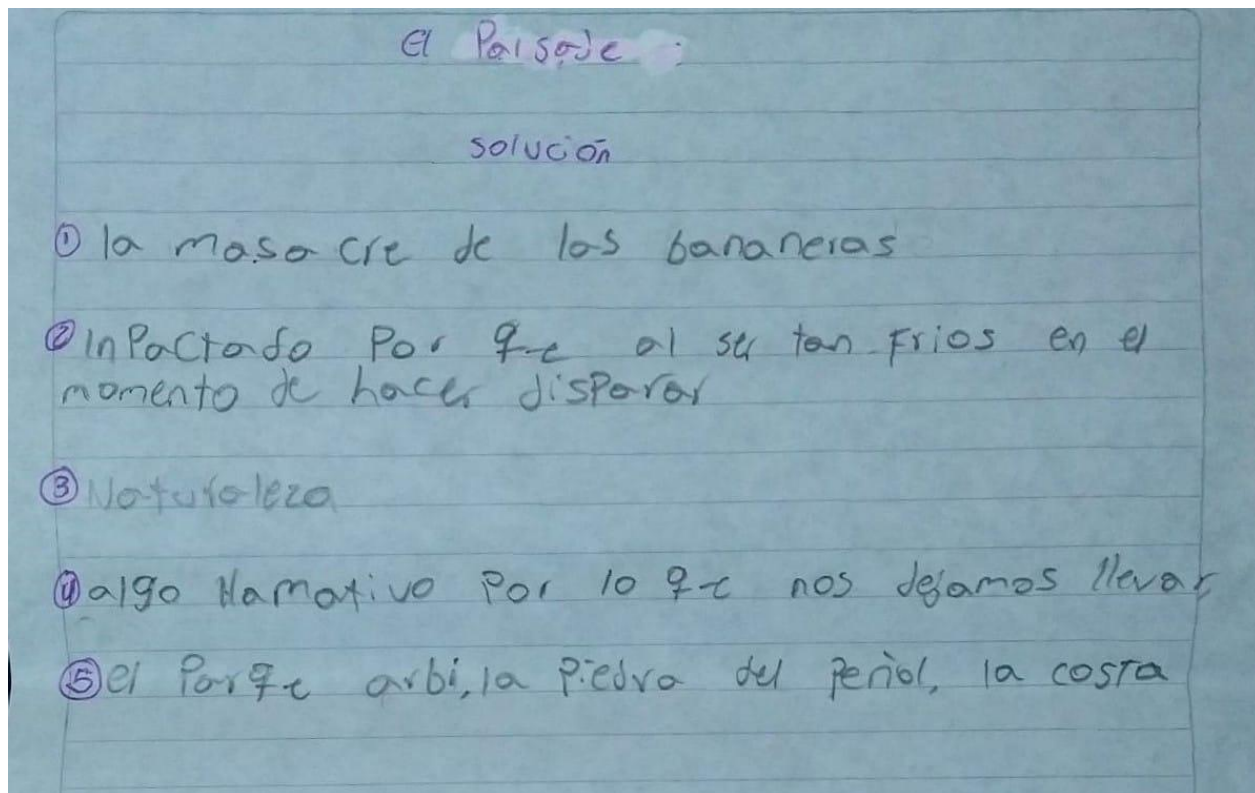 El Paisaje:
solución
① la masacre de las bananeras
② inpactado por qe al ser tan frios en el
momento de hacer disparar
③ Naturaleza
④ algo llamativo por lo qe nos dejamos llevar
⑤ el parqe arbi, la piedra del peñol, la costa